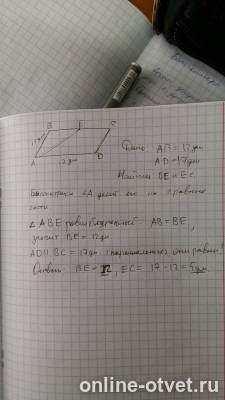 B E C
A D
17 дм
Дано: AB = 12 дм
AD = 17 дм
Найти: BE и EC
Биссектриса ∠A делит его на 2 равные
части.
△ ABE равнобедренный AB = BE,
значит BE = 12 дм.
AD || BC = 17 дм (параллельны), они равны
Ответ: BE = 12, EC = 17 - 12 = 5 дм.
online-otvet.ru